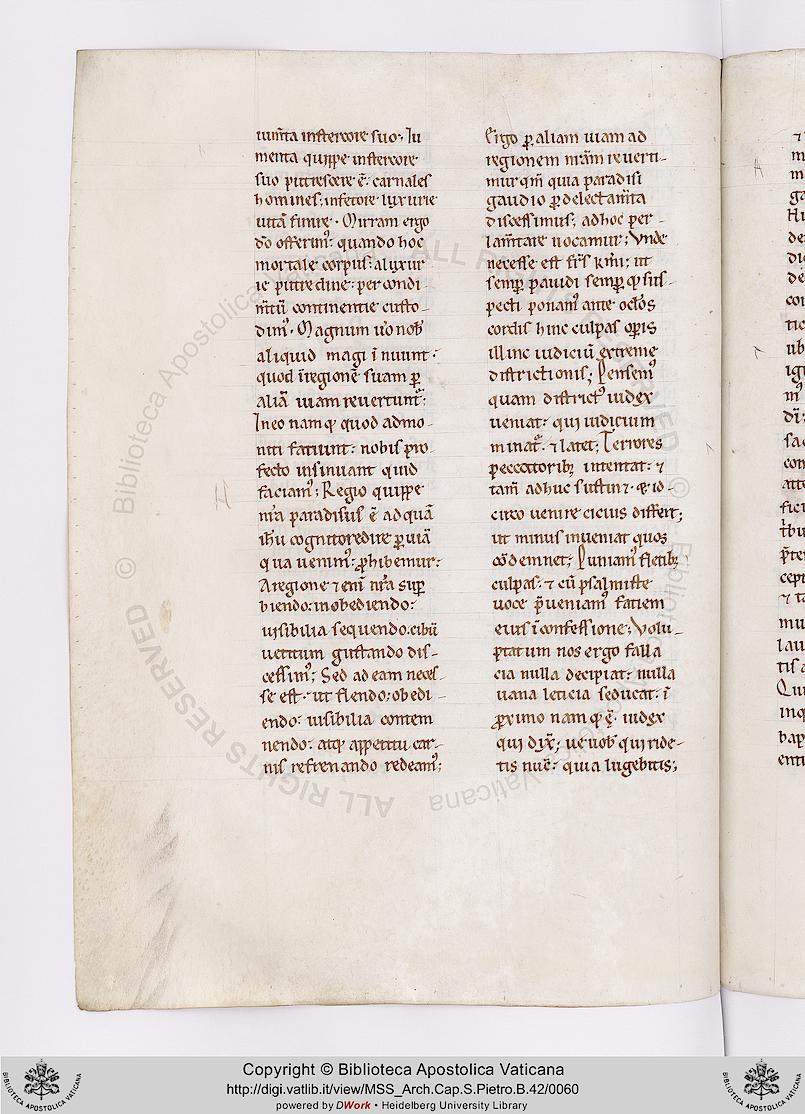 ium̃ta instercore suo; Iu
menta quippe instercore
suo putrescere ē; carnales
homines; infetore luxurie
uitā finire. Mirram ergo
dõ offerim᷒; quando hoc
mortale corpus; aluxur
ie putredine; per condi
m̃tũ continentie custo-
dim᷒. Magnum ũo nob̃
aliquid magi ĩnuunt.
quod ĩregionẽ suam ꝑ
aliã uiam reuertunt᷑;
Ineo namq quod admo-
niti faciunt; nobis pro-
fecto insinuant quid
faciam᷒; Regio quippe
nr̃a paradisus ẽ adquã
ihũ cognito redire ꝑ uiã
qua uenim᷒; ꝓhibemur.
A regione eñi nr̃a suꝑ
biendo; inobediendo;
uisibilia sequendo. cibũ
uetitum gustando dis-
cessim᷒; Sed ad eam neces-
se est. ut flendo; obedi-
endo; uisibilia contem
nendo; atq; appetitu car-
nis refrenando redeam᷒;
Ergo ꝑ aliam uiam ad
regionem nr̃am reuerti-
mur qm̃ quia paradisi
gaudio ꝑ delectam̃ta
discessimus; ad hoc per
lam̃ta uocamur; Vnde
necesse est fr̃s km̃i; ut
semꝑ pauidi semꝑ q; sus-
pecti ponam᷒ ante oct̃os
cordis hinc culpas oꝑis
illinc iudiciũ extreme
districtionis; Pensem᷒
quam district᷒ iudex
ueniat; qui iudicium
minat᷑. ⁊ latet; Terrores
peccatorib; intentat; ⁊
tam̃ adhuc sustin⁊. ⁊ id-
circo uenire cicius differt;
ut minus inueniat quos
cõdemnet; Puniam᷒ fletib;
culpas; ⁊ cũ psalmiste
uoce p̃ueniam᷒ faciem
eius ĩ confessione; Volu-
ptatum nos ergo falla
cia nulla decipiat; nulla
uana leticia seducat; ĩ
ꝓximo namq ẽ; iudex
qui dix̃; ue uob̃ qui ride-
tis nũc; quia lugebitis;
© Biblioteca Apostolica Vaticana ALL RIGHTS RESERVED © Biblioteca Apostolica Vaticana ALL RIGHTS RESERVED
Copyright © Biblioteca Apostolica Vaticana
http://digi.vatlib.it/view/MSS_Arch.Cap.S.Pietro.B.42/0060
powered by DWork • Heidelberg University Library
BIBLIOTECA APOSTOLICA VATICANA
BIBLIOTECA APOSTOLICA VATICANA